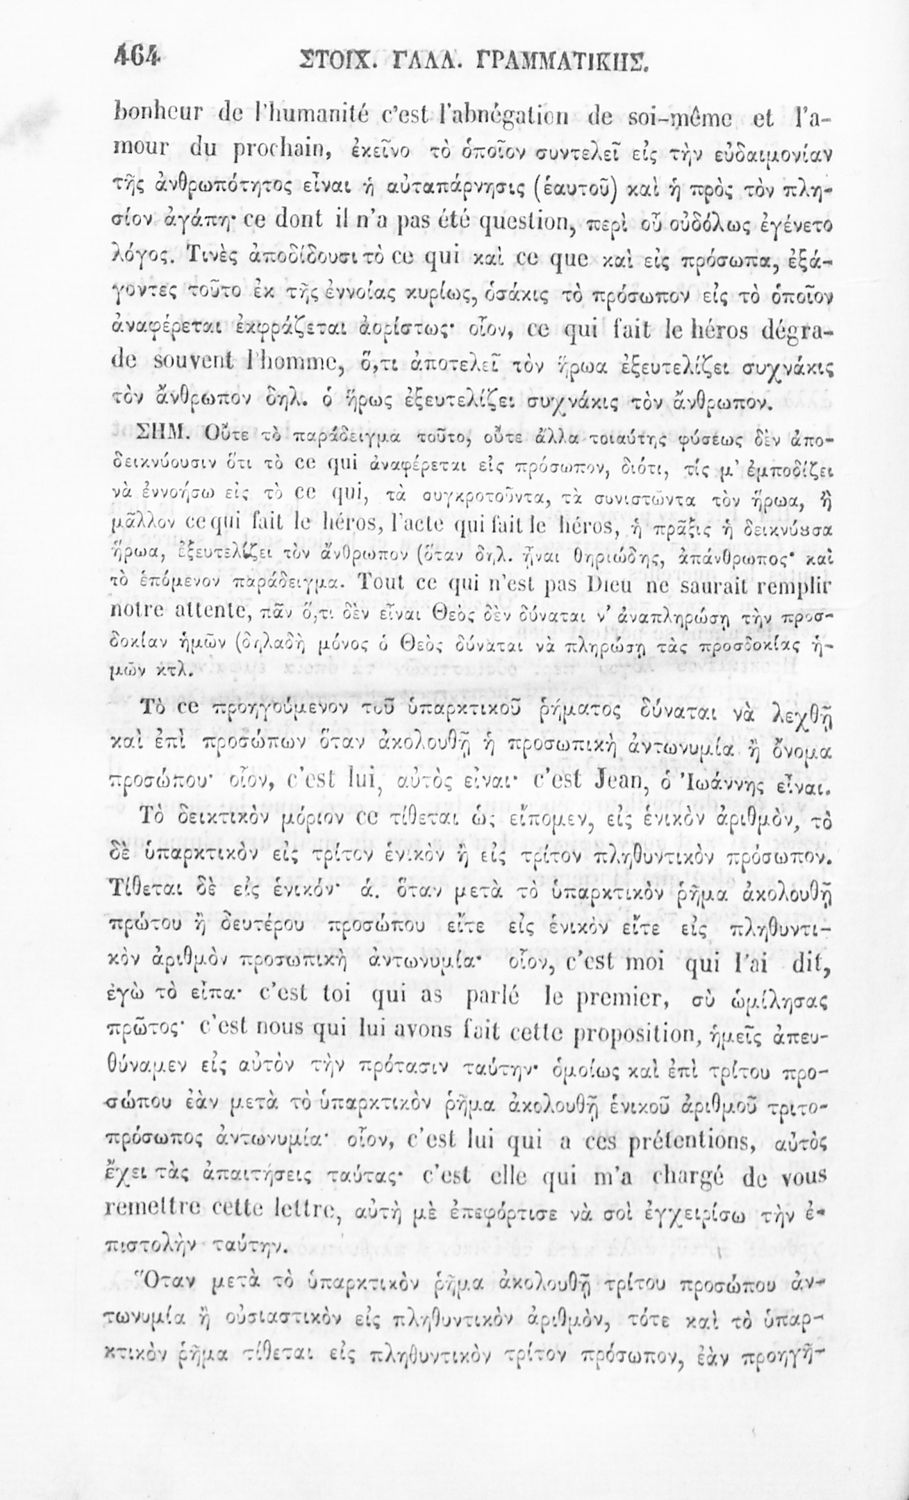 464 ΣΤΟΙΧ. ΓΑΛΛ. ΓΡΑΜΜΑΤΙΚΗΣ.
bonheur de l'humanité c'est l'abnégation de soi-même et l'a-
mour du prochain, ἐκεῖνο τὸ ὁποῖον συντελεῖ εἰς τὴν εὐδαιμονίαν
τῆς ἀνθρωπότητος εἶναι ἡ αὐταπάρνησις (ἑαυτοῦ) καὶ ἡ πρὸς τὸν πλη-
σίον ἀγάπη· ce dont il n'a pas été question, περὶ οὗ οὐδόλως ἐγένετο
λόγος. Τινὲς ἀποδίδουσι τὸ ce qui καὶ ce que καὶ εἰς πρόσωπα, ἐξά-
γοντες τοῦτο ἐκ τῆς ἐννοίας κυρίως, ὁσάκις τὸ πρόσωπον εἰς τὸ ὁποῖον
ἀναφέρεται ἐκφράζεται ἀορίστως· οἷον, ce qui fait le héros dégra-
de souvent l'homme, ὅ,τι ἀποτελεῖ τὸν ἥρωα ἐξευτελίζει συχνάκις
τὸν ἄνθρωπον δηλ. ὁ ἥρως ἐξευτελίζει συχνάκις τὸν ἄνθρωπον.
ΣΗΜ. Οὔτε τὸ παράδειγμα τοῦτο, οὔτε ἄλλα τοιαύτης φύσεως δὲν ἀπο-
δεικνύουσιν ὅτι τὸ ce qui ἀναφέρεται εἰς πρόσωπον, διότι, τίς μ' ἐμποδίζει
νὰ ἐννοήσω εἰς τὸ ce qui, τὰ συγκροτοῦντα, τὰ συνιστῶντα τὸν ἥρωα, ἢ
μᾶλλον ce qui fait le héros, l'acte qui fait le héros, ἡ πρᾶξις ἡ δεικνύουσα
ἥρωα, ἐξευτελίζει τὸν ἄνθρωπον (ὅταν δηλ. ἦναι θηριώδης, ἀπάνθρωπος· καὶ
τὸ ἑπόμενον παράδειγμα. Tout ce qui n'est pas Dieu ne saurait remplir
notre attente, πᾶν ὅ,τι δὲν εἶναι Θεὸς δὲν δύναται ν' ἀναπληρώσῃ τὴν προσ-
δοκίαν ἡμῶν (δηλαδὴ μόνος ὁ Θεὸς δύναται νὰ πληρώσῃ τὰς προσδοκίας ἡ-
μῶν κτλ.
Τὸ ce προηγούμενον τοῦ ὑπαρκτικοῦ ῥήματος δύναται νὰ λεχθῇ
καὶ ἐπὶ προσώπων ὅταν ἀκολουθῇ ἡ προσωπικὴ ἀντωνυμία ἢ ὄνομα
προσώπου· οἷον, c'est lui, αὐτὸς εἶναι· c'est Jean, ὁ Ἰωάννης εἶναι.
Τὸ δεικτικὸν μόριον ce τίθεται ὡς εἴπομεν, εἰς ἑνικὸν ἀριθμὸν, τὸ
δὲ ὑπαρκτικὸν εἰς τρίτον ἑνικὸν ἢ εἰς τρίτον πληθυντικὸν πρόσωπον.
Τίθεται δὲ εἰς ἑνικόν· ά. ὅταν μετὰ τὸ ὑπαρκτικὸν ῥῆμα ἀκολουθῇ
πρώτου ἢ δευτέρου προσώπου εἴτε εἰς ἑνικὸν εἴτε εἰς πληθυντι-
κὸν ἀριθμὸν προσωπικὴ ἀντωνυμία· οἷον, c'est moi qui l'ai dit,
ἐγὼ τὸ εἶπα· c'est toi qui as parlé le premier, σὺ ὡμίλησας
πρῶτος· c'est nous qui lui avons fait cette proposition, ἡμεῖς ἀπευ-
θύναμεν εἰς αὐτὸν τὴν πρότασιν ταύτην· ὁμοίως καὶ ἐπὶ τρίτου προ-
σώπου ἐὰν μετὰ τὸ ὑπαρκτικὸν ῥῆμα ἀκολουθῇ ἑνικοῦ ἀριθμοῦ τριτο-
πρόσωπος ἀντωνυμία· οἷον, c'est lui qui a ces prétentions, αὐτὸς
ἔχει τὰς ἀπαιτήσεις ταύτας· c'est elle qui m'a chargé de vous
remettre cette lettre, αὐτὴ μὲ ἐπεφόρτισε νὰ σοὶ ἐγχειρίσω τὴν ἐ-
πιστολὴν ταύτην.
Ὅταν μετὰ τὸ ὑπαρκτικὸν ῥῆμα ἀκολουθῇ τρίτου προσώπου ἀν-
τωνυμία ἢ οὐσιαστικὸν εἰς πληθυντικὸν ἀριθμὸν, τότε καὶ τὸ ὑπαρ-
κτικὸν ῥῆμα τίθεται εἰς πληθυντικὸν τρίτον πρόσωπον, ἐὰν προηγῆ-